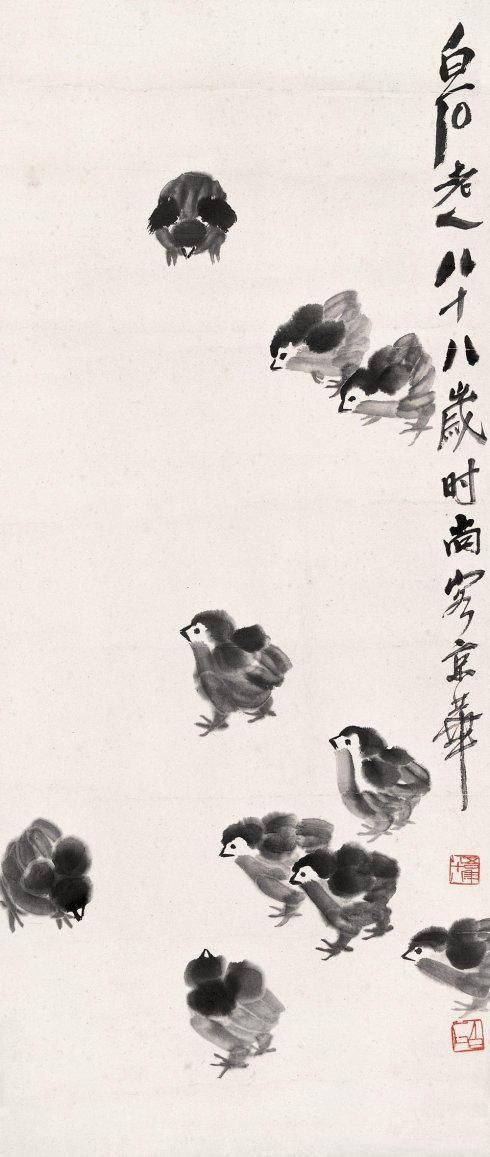 白石老人八十八歲时尚客京華